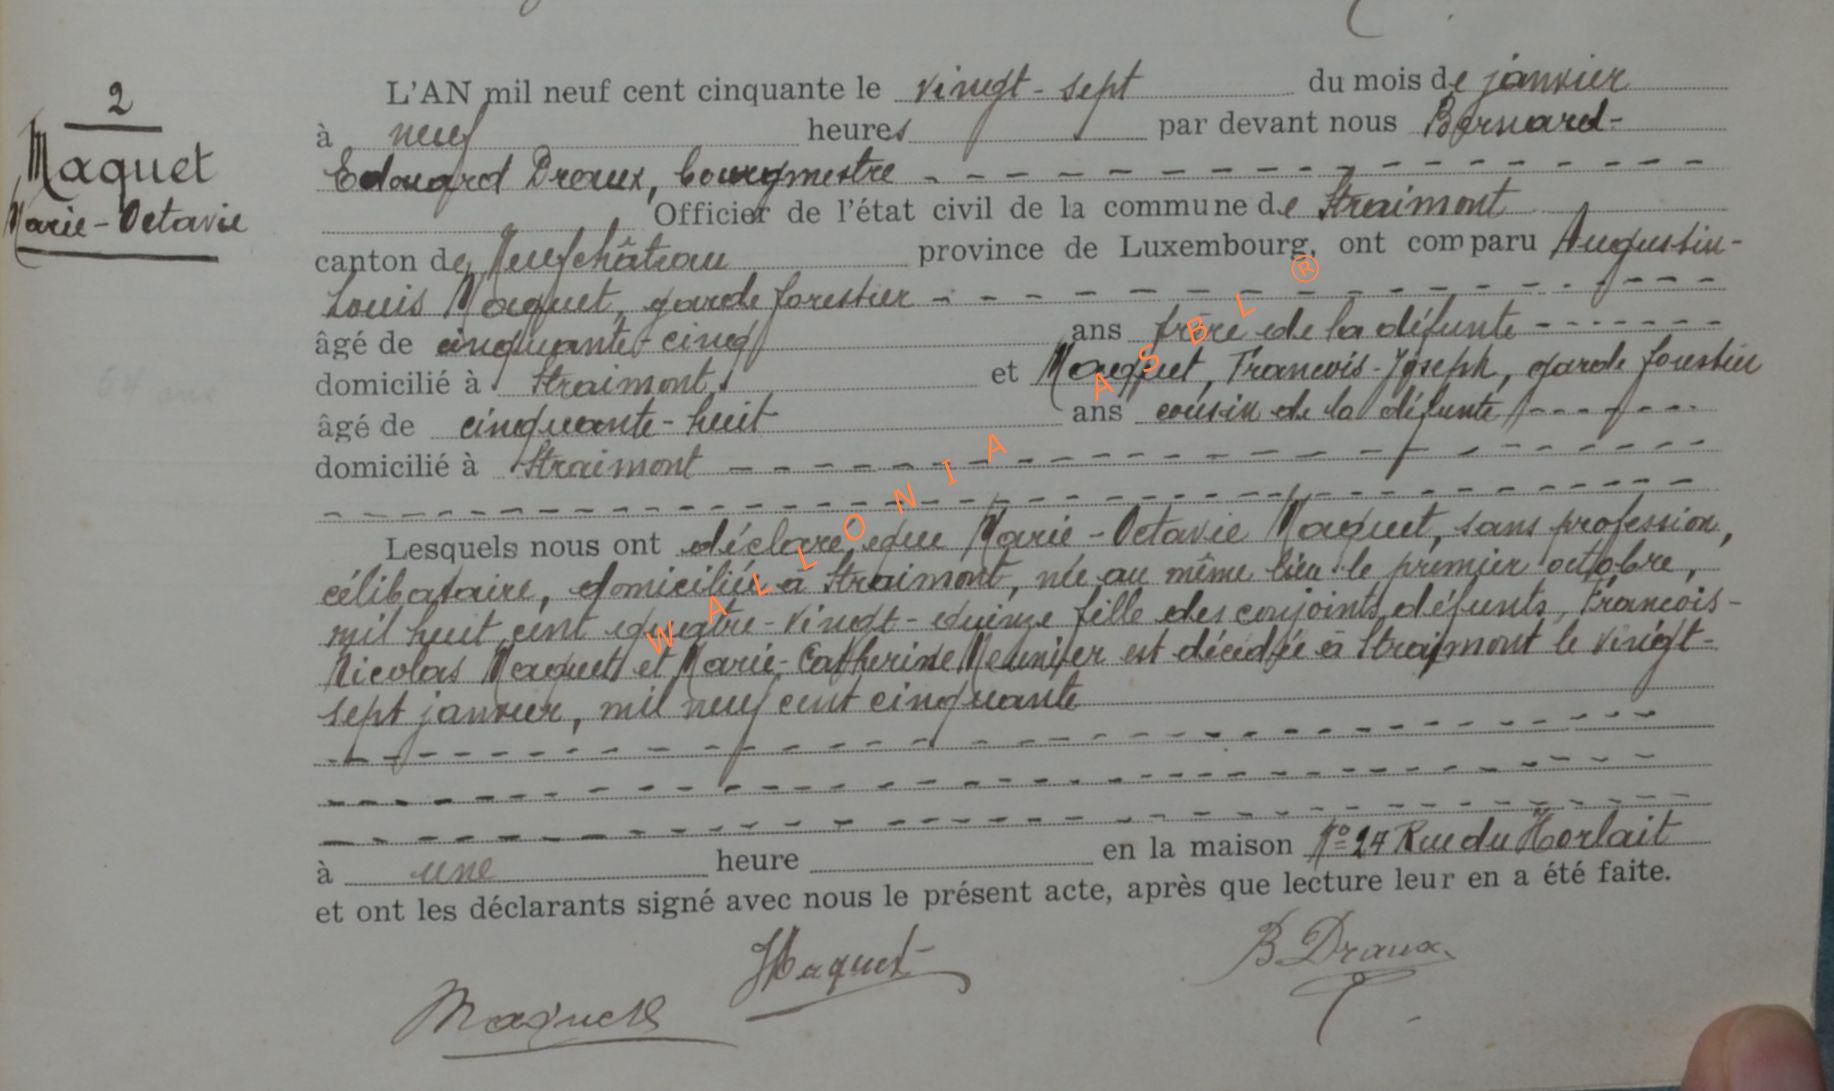 2
Maquet
Marie-Octavie
L'AN mil neuf cent cinquante le vingt-sept du mois de janvier
à neuf heures par devant nous Bernard-
Edouard Draux, bourgmestre
Officier de l'état civil de la commune de Straimont
canton de Neufchâteau province de Luxembourg, ont comparu Augustin-
Louis Maquet, garde forestier
âgé de cinquante-cinq ans frère de la défunte
domicilié à Straimont, et Maquet, Francois-Joseph, garde forestier
64 ans
âgé de cinquante-huit ans cousin de la défunte,
domicilié à Straimont
Lesquels nous ont déclaré que Marie-Octavie Maquet, sans profession,
célibataire, domiciliée à Straimont, née au même lieu le premier octobre,
mil huit cent quatre-vingt-quinze fille des conjoints défunts, Francois-
Nicolas Maquet et Marie-Catherine Meunier est décédée à Straimont le vingt-
sept janvier, mil neuf cent cinquante
à une heure en la maison N° 24 Rue du Horlait
et ont les déclarants signé avec nous le présent acte, après que lecture leur en a été faite.
Maquet
B Draux
Maquet
WALLONIA ASBL ®